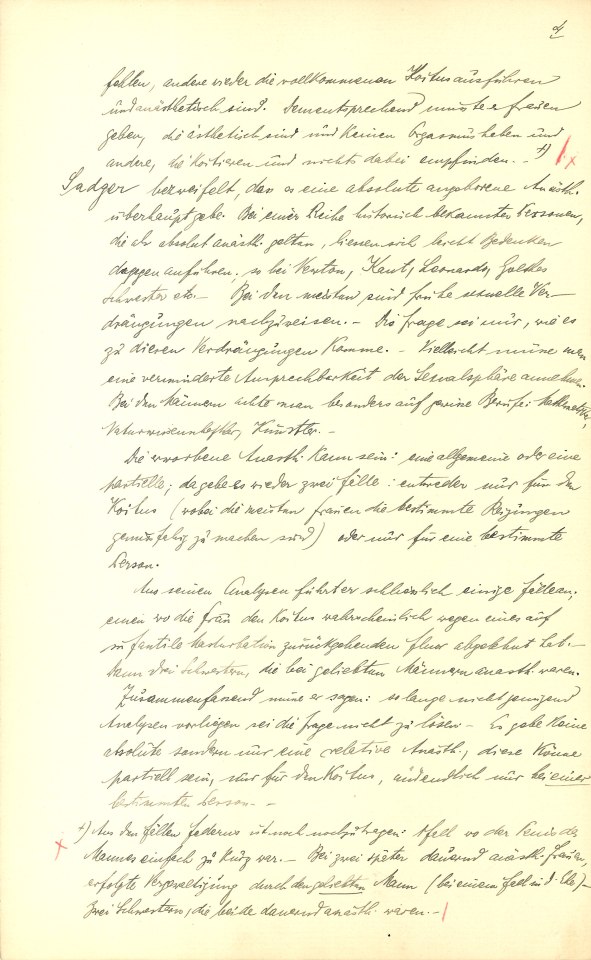 4
fehlen, andere wieder die vollkommenen Koitus ausführen
und anästhetisch sind. Dementsprechend müsste es Frauen
geben, die ästhetisch sind und keinen Orgasmus haben und
andere, die koitieren und nichts dabei empfinden. - +)
Sadger bezweifelt, dass es eine absolute angeborene Anästh.
überhaupt gebe. Bei einer Reihe historisch bekannter Personen,
die als absolut anästh. gelten, liessen sich leicht Bedenken
dagegen anführen, so bei Newton, Kant, Leonardo, Goethes
Schwester etc. - Bei den meisten sind frühe sexuelle Ver-
drängungen nachzuweisen. - Die Frage sei nur, wie es
zu diesen Verdrängungen komme. - Vielleicht müsse man
eine verminderte Ansprechbarkeit der Sexualsphäre annehmen.
Bei den Männern achte man besonders auf gewisse Berufe: Mathematiker,
Naturwissenschaftler, Künstler. -
Die erworbene Anästh. kann sein: eine allgemeine oder eine
partielle; da gebe es wieder zwei Fälle: entweder nur für den
Koitus (wobei die meisten Frauen die bestimmte Reizungen
genussfähig zu machen sind) oder nur für eine bestimmte
Person.
Aus seinen Analysen führt er schliesslich einige Fälle an.
einen wo die Frau den Koitus wahrscheinlich wegen eines auf
infantile Masturbation zurückgehenden Fluor abgelehnt hat. -
Dann drei Schwestern, die bei geliebten Männern anästh. waren.
Zusammenfassend müsse er sagen: so lange nicht genügend
Analysen vorliegen sei die Frage nicht zu lösen. - Es gebe keine
absolute sondern nur eine relative Anästh., diese könne
partiell sein, nur für den Koitus, und endlich nur bei einer
bestimmten Person. -
+) Aus den Fällen Federns ist noch nachzutragen: 1 Fall wo der Penis des
Mannes einfach zu kurz war. - Bei zwei später dauernd anästh. Frauen,
erfolgte Vergewaltigung durch den geliebten Mann (bei einem Fall in d. Ehe) -
Zwei Schwestern, die beide dauernd anästh. waren. -